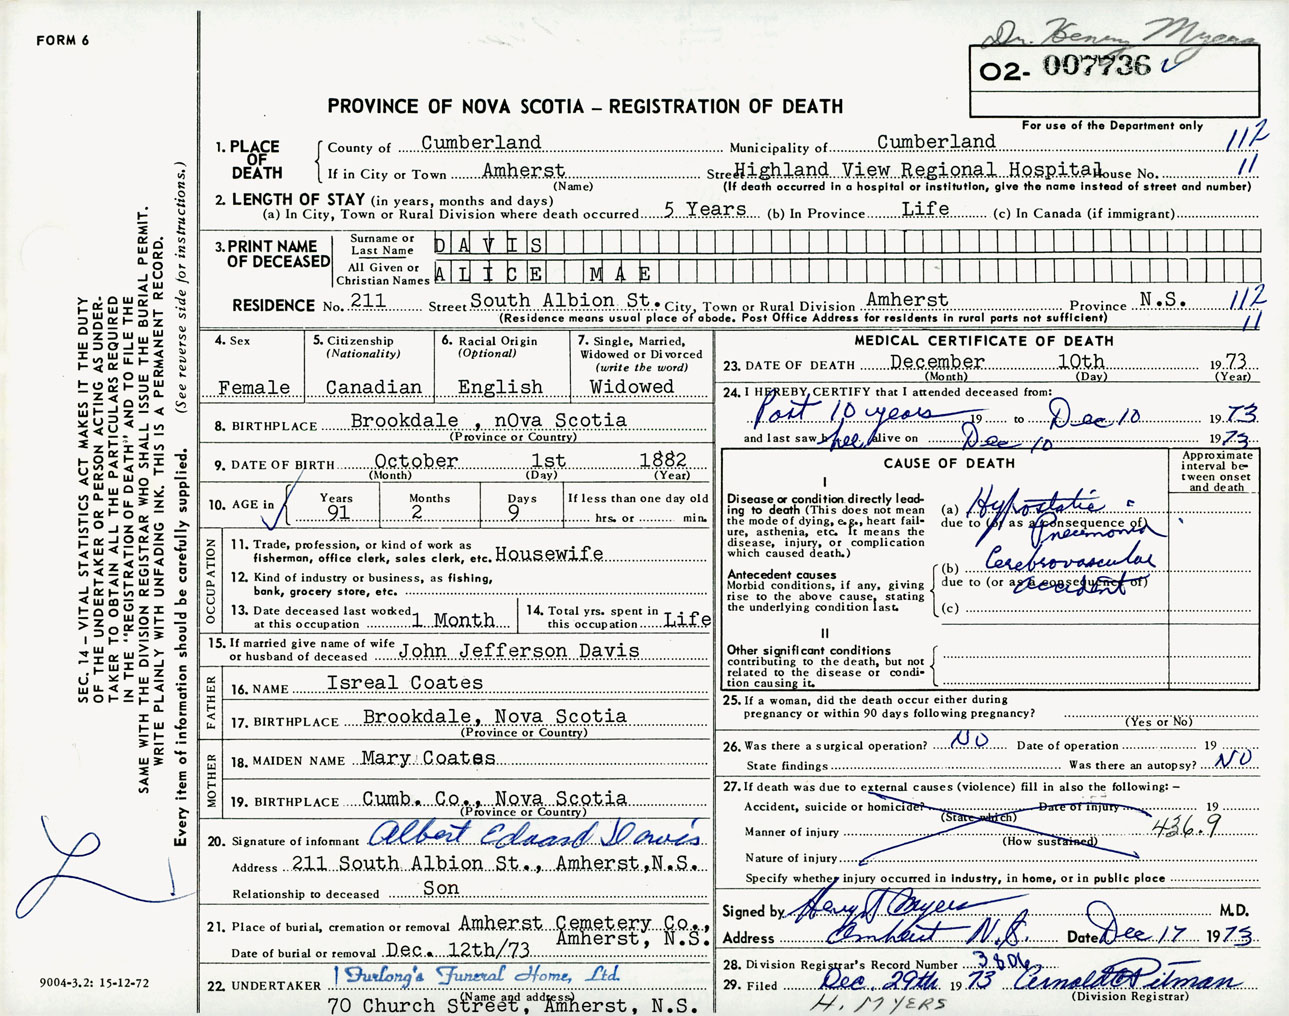 FORM 6
Dr. Henry Myers
O2- 007736
For use of the Department only
PROVINCE OF NOVA SCOTIA – REGISTRATION OF DEATH
1. PLACE OF DEATH
County of Cumberland Municipality of Cumberland 112
If in City or Town Amherst Street Highland View Regional Hospital House No. 11
(Name) (If death occurred in a hospital or institution, give the name instead of street and number)
2. LENGTH OF STAY (in years, months and days)
(a) In City, Town or Rural Division where death occurred 5 Years (b) In Province Life (c) In Canada (if immigrant)
3. PRINT NAME OF DECEASED
Surname or Last Name DAVIS
All Given or Christian Names ALICE MAE
RESIDENCE No. 211 Street South Albion St. City, Town or Rural Division Amherst Province N.S. 112
(Residence means usual place of abode. Post Office Address for residents in rural parts not sufficient) 11
4. Sex
Female
5. Citizenship
(Nationality)
Canadian
6. Racial Origin
(Optional)
English
7. Single, Married,
Widowed or Divorced
(write the word)
Widowed
8. BIRTHPLACE Brookdale , nOva Scotia
(Province or Country)
9. DATE OF BIRTH October 1st 1882
(Month) (Day) (Year)
10. AGE in Years Months Days If less than one day old
91 2 9 hrs. or min.
OCCUPATION
11. Trade, profession, or kind of work as
fisherman, office clerk, sales clerk, etc. Housewife
12. Kind of industry or business, as fishing,
bank, grocery store, etc.
13. Date deceased last worked
at this occupation 1 Month
14. Total yrs. spent in
this occupation Life
15. If married give name of wife
or husband of deceased John Jefferson Davis
FATHER
16. NAME Isreal Coates
17. BIRTHPLACE Brookdale, Nova Scotia
(Province or Country)
MOTHER
18. MAIDEN NAME Mary Coates
19. BIRTHPLACE Cumb. Co., Nova Scotia
(Province or Country)
20. Signature of informant Albert Eduard Davis
Address 211 South Albion St., Amherst,N.S.
Relationship to deceased Son
21. Place of burial, cremation or removal Amherst Cemetery Co.,
Amherst, N.S.
Date of burial or removal Dec. 12th/73
22. UNDERTAKER Furlong's Funeral Home, Ltd.
(Name and address)
70 Church Street, Amherst, N.S.
MEDICAL CERTIFICATE OF DEATH
23. DATE OF DEATH December 10th 1973
(Month) (Day) (Year)
24. I HEREBY CERTIFY that I attended deceased from:
Past 10 years 19 to Dec 10 1973
and last saw her alive on Dec 10 1973
CAUSE OF DEATH
Approximate interval between onset and death
I
Disease or condition directly leading to death (This does not mean the mode of dying, e.g., heart failure, asthenia, etc. It means the disease, injury, or complication which caused death.)
(a) Hypostatic
due to (or as a consequence of)
Pneumonia
Antecedent causes
Morbid conditions, if any, giving rise to the above cause, stating the underlying condition last.
(b) Cerebrovascular
due to (or as a consequence of)
accident
(c)
II
Other significant conditions
contributing to the death, but not related to the disease or condition causing it.
25. If a woman, did the death occur either during
pregnancy or within 90 days following pregnancy?
(Yes or No)
26. Was there a surgical operation? NO Date of operation 19
State findings Was there an autopsy? NO
27. If death was due to external causes (violence) fill in also the following: –
Accident, suicide or homicide? Date of injury 19
(State which)
Manner of injury 436.9
(How sustained)
Nature of injury
Specify whether injury occurred in industry, in home, or in public place
Signed by Henry J Myers M.D.
Address Amherst N.S. Date Dec 17 1973
28. Division Registrar's Record Number 3806
29. Filed Dec. 29th 1973 Arnold C Pitman
(Division Registrar)
H. MYERS
SEC. 14 – VITAL STATISTICS ACT MAKES IT THE DUTY
OF THE UNDERTAKER OR PERSON ACTING AS UNDER-
TAKER TO OBTAIN ALL THE PARTICULARS REQUIRED
IN THE "REGISTRATION OF DEATH" AND TO FILE THE
SAME WITH THE DIVISION REGISTRAR WHO SHALL ISSUE THE BURIAL PERMIT.
WRITE PLAINLY WITH UNFADING INK. THIS IS A PERMANENT RECORD.
Every item of information should be carefully supplied. (See reverse side for instructions.)
9004-3.2: 15-12-72